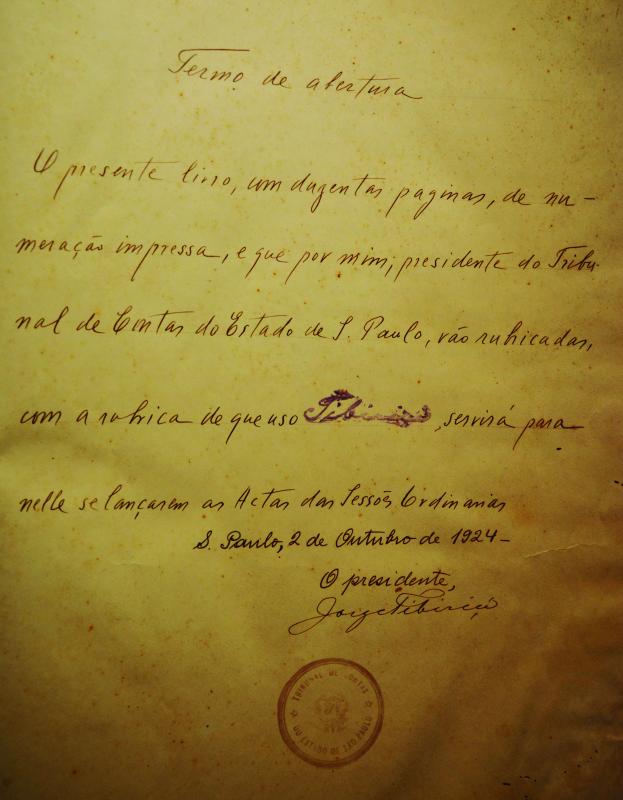 Termo de abertura
O presente livro, com duzentas paginas, de nu-
meração impressa, e que por mim, presidente do Tribu-
nal de Contas do Estado de S. Paulo, vão rubricadas,
com a rubrica de que uso Tibiriçá, servirá para
nelle se lançarem as Actas das Sessões Ordinarias
S. Paulo, 2 de Outubro de 1924-
O presidente,
Jorge Tibiriçá
TRIBUNAL DE CONTAS
DO ESTADO DE SÃO PAULO